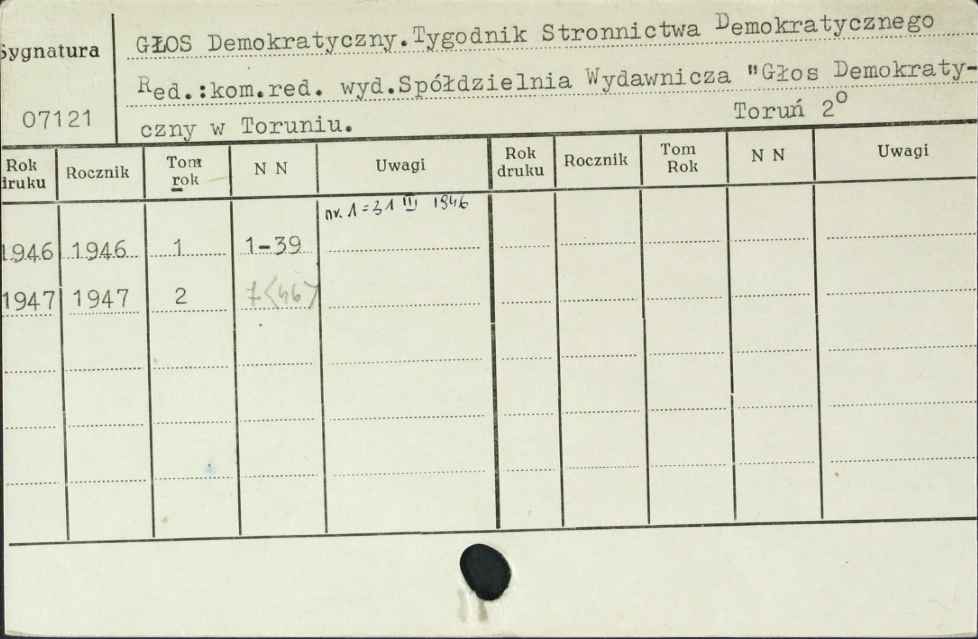 Sygnatura
07121
GŁOS Demokratyczny.Tygodnik Stronnictwa Demokratycznego
Red.:kom.red. wyd.Spółdzielnia Wydawnicza "Głos Demokraty-
czny w Toruniu. Toruń 2°
Rok druku Rocznik Tom rok N N Uwagi Rok druku Rocznik Tom Rok N N Uwagi
nr. 1 = 31 III 1946
1946 1946 1 1-39
1947 1947 2